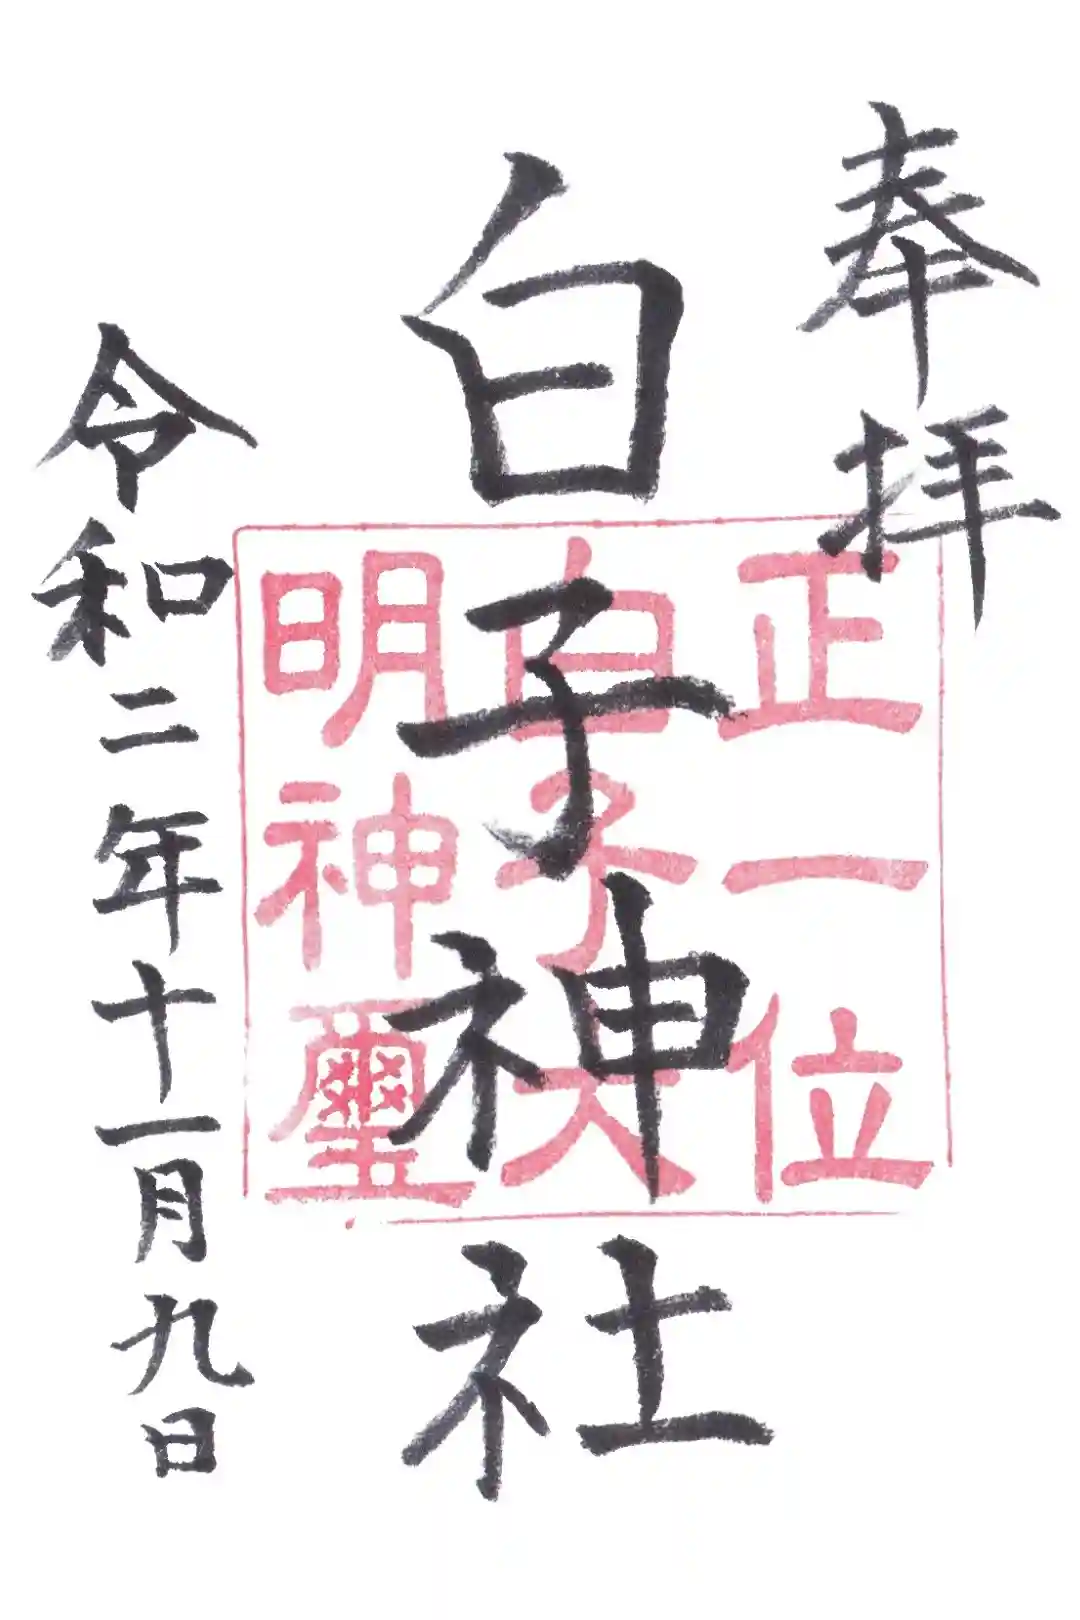 奉拝
白子神社
令和二年十一月九日
正一位
白子大
明神璽